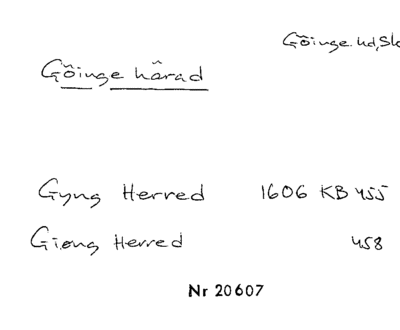 Göinge hd, Sk
Göinge härad
Gyng Herred 1606 KB 455
Giøng Herred 458
Nr 20607